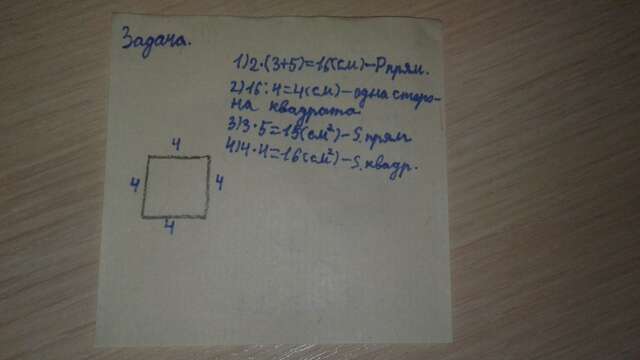 Задача.
1)2·(3+5)=16(см)-Pпрям.
2)16:4=4(см)-одна сторо-
на квадрата
3)3·5=15(см²)-S.прям
4)4·4=16(см²)-S.квадр.
4
4
4
4